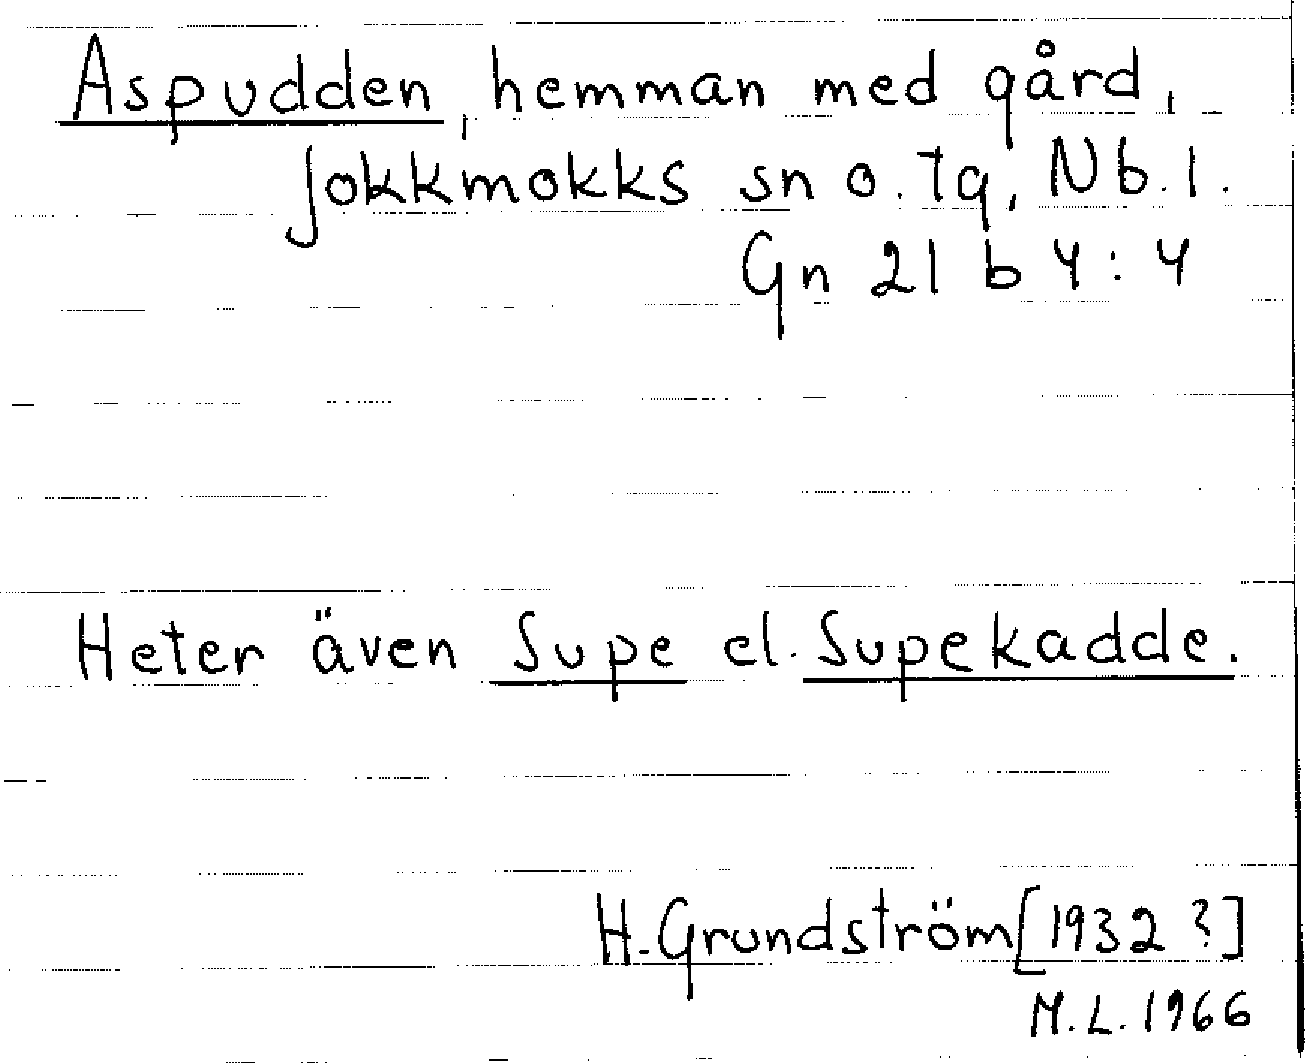 Aspudden, hemman med gård,
Jokkmokks sn o. tg, Nb. l.
Gn 21 b 4:4
Heter även Supe el. Supekadde.
H. Grundström [1932 ?]
M.L. 1966